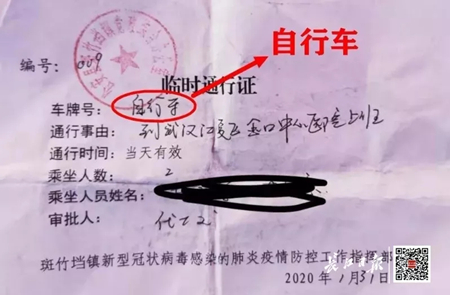 自行车
编号：009
临时通行证
车牌号：自行车
通行事由：到武汉江夏区金口中心医院上班
通行时间：当天有效
乘坐人数：2
乘坐人员姓名：
审批人：
长江日报
斑竹垱镇新型冠状病毒感染的肺炎疫情防控工作指挥部
2020年1月31日